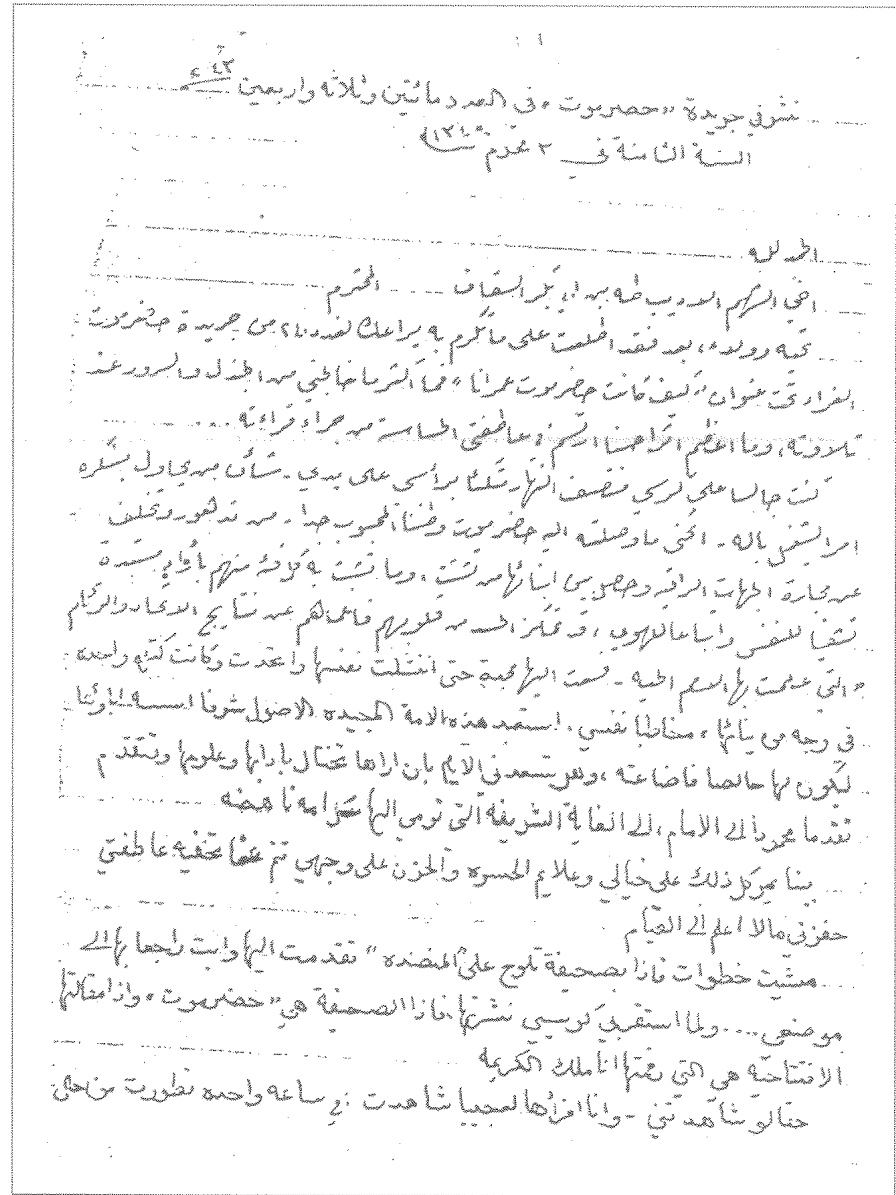 ١
نشر في جريدة "حضرموت" في العدد مائتين وثلاثة واربعين ٢٤٣
السنة الثامنة في ٣ محرم ١٣٥٠
الحمد لله
اخي الشهم الاديب طه بن ابي بكر السقاف .... المحترم
تحيه وولاء، بعد فقد اطلعت على ما تكرم به يراعك لعدد ٢١٠ من جريدة حضرموت
الغراء تحت عنوان "كيف كانت حضرموت عمرانا" فما اكثر ما خالجني من الجذل والسرور عند
تلاوته، وما اعظم اثرا حسنا ارتسم في عاطفتي الحساسة من جراء قراءته ....
كنت جالسا على كرسي منتصف النهار متكئا برأسى على يدي - شأن من يحاول بفكره
امرا يشغل باله - الحتى ما وصلت اليه حضرموت وطننا المحبوب جدا - من تدهور وتخلف
عن مجاراة الجهات الراقيه وحصر بين ابنائها من تشتت، وما تشبث به كل فرقة منهم بأراء مستبدة
تشفيا للنفس واتباعا للهوى، قد تمكن الحسد من قلوبهم فاعماهم عن نتايج الاتحاد والوئام
"التي علمت بها الامم الحيه - فسعت اليها محبة حتى انتشلت نفسها واتحدت وكانت كتلة واحده
في وجه من يناوئها" مخاطبا نفسي، استعيد هذه الامة المجيده الاصول شرفا اسسه اباؤنا
ليكون لها خالصا فاضاعته، وهل تسعدني الايام بان اراها تختال بادابها وعلومها وتتقدم
تقدما محمودا الى الامام، الى الغاية الشريفة التي تومي اليها كل امة ناهضه
بينا يمر كل ذلك على خيالي وعلايم الحسره والحزن على وجهي تنم عما تخفيه عاطفتي
حفزني مالا اعلم الى القيام
مشيت خطوات فاذا بصحيفة تلوح على "المنضده" تقدمت اليها وابت راجعا بها الى
موضعى .... ولما استقر بي كرسيي نشرتها، فاذا الصحيفة هي "حضرموت" واذا مقالتها
الافتتاحيه هي التي نمقتها اناملك الكريمه
حقا لو شاهدتني - وانا اقرأها لعجبيا شاهدت: في ساعه واحده تطورت من حال